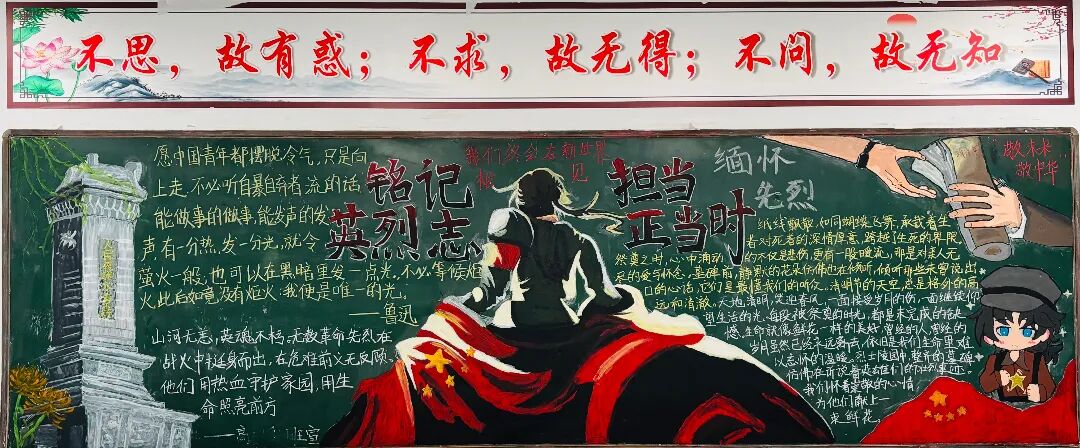 不思，故有惑；不求，故无得；不问，故无知
愿中国青年都摆脱冷气，只是向
上走，不必听自暴自弃者流的话，
能做事的做事，能发声的发
声。有一分热，发一分光，就令
萤火一般，也可以在黑暗里发一点光，不必等候炬
火。此后如竟没有炬火：我便是唯一的光。
——鲁迅
山河无恙，英魂不朽，无数革命先烈在
战火中挺身而出，在危难前义无反顾。
他们用热血守护家园，用生
命照亮前方
铭记
英烈志
我们终会在新世界
相见
担当
正当时
缅怀
先烈
敬未来
敬中华
纸钱飘散，如同蝴蝶飞舞，承载着生
者对死者的深情厚意，跨越了生死的界限。
祭奠之时，心中涌动的不仅是悲伤，更有一段暖流，那是对亲人无
尽的眷与怀念。墓碑前，静默的花朵仿佛也在倾听，倾听那些未曾说出
口的心话，它们是最懂我们的听众。清明节的天空，总是格外的高
远和清澈。天地清明，笑迎春风，一面接受岁月的伤，一面继续仰
望生活的光。每段被祭奠的时光，都是未完成的缺
憾，生命就像鲜花一样的美好，曾经的人曾经的
岁月虽然已经永远离去，依旧是我们生命里难
以忘怀的温暖。烈士陵园中，整齐的墓碑
仿佛在诉说着英雄们的壮烈事迹，
我们怀着崇敬的心情，
为他们献上一
束鲜花。